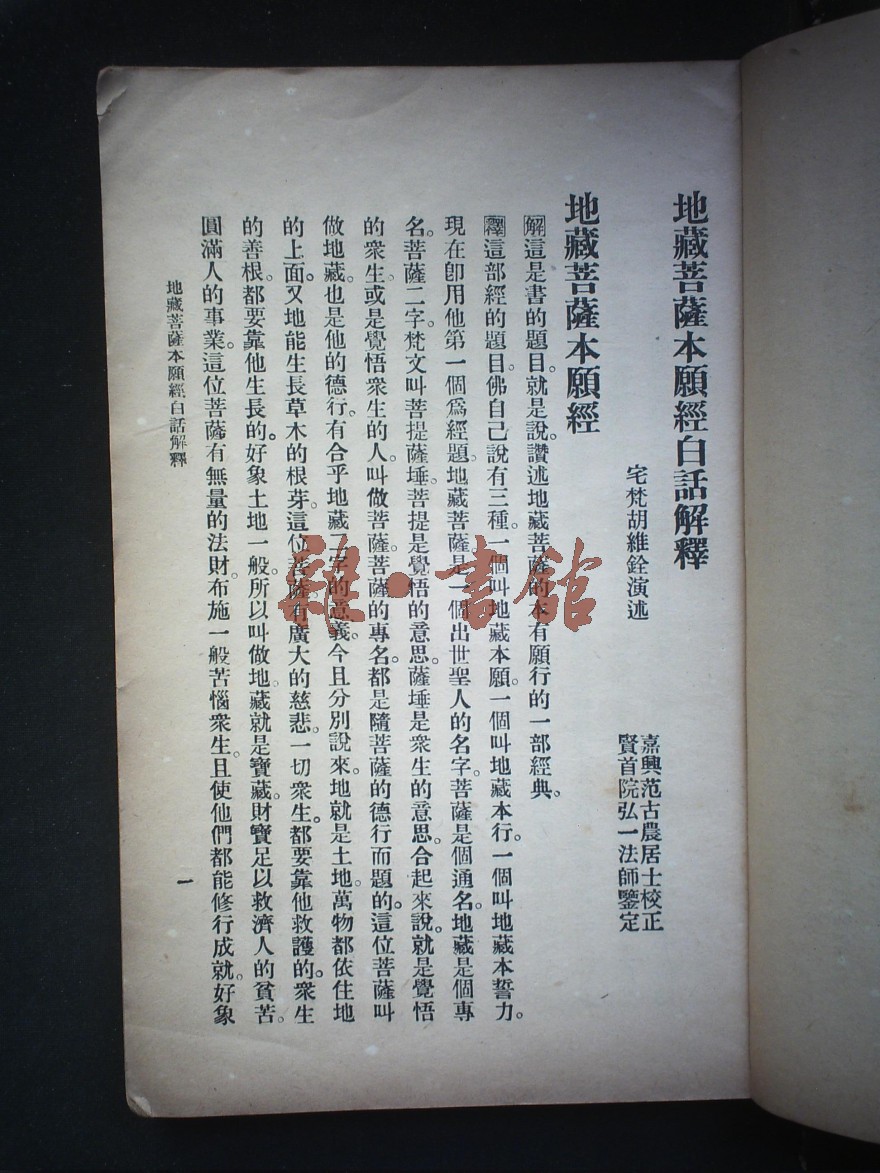 地藏菩薩本願經白話解釋
宅梵胡維銓演述
嘉興范古農居士校正
賢首院弘一法師鑒定
地藏菩薩本願經
解這是書的題目。就是說。讚述地藏菩薩的本有願行的一部經典。
釋這部經的題目。佛自己說有三種。一個叫地藏本願。一個叫地藏本行。一個叫地藏本誓力。
現在卽用他第一個爲經題。地藏菩薩。是一個出世聖人的名字。菩薩是個通名。地藏是個專
名。菩薩二字。梵文叫菩提薩埵。菩提是覺悟的意思。薩埵是衆生的意思。合起來說。就是覺悟
的衆生。或是覺悟衆生的人。叫做菩薩。菩薩的專名。都是隨菩薩的德行而題的。這位菩薩叫
做地藏。也是他的德行。有合乎地藏二字的意義。今且分別說來。地就是土地。萬物都依住地
的上面。又地能生長草木的根芽。這位菩薩有廣大的慈悲。一切衆生。都要靠他救護的。衆生
的善根。都要靠他生長的。好象土地一般。所以叫做地。藏就是寶藏。財寶足以救濟人的貧苦。
圓滿人的事業。這位菩薩有無量的法財。布施一般苦惱衆生。且使他們都能修行成就。好象
地藏菩薩本願經白話解釋
一
雜·書館